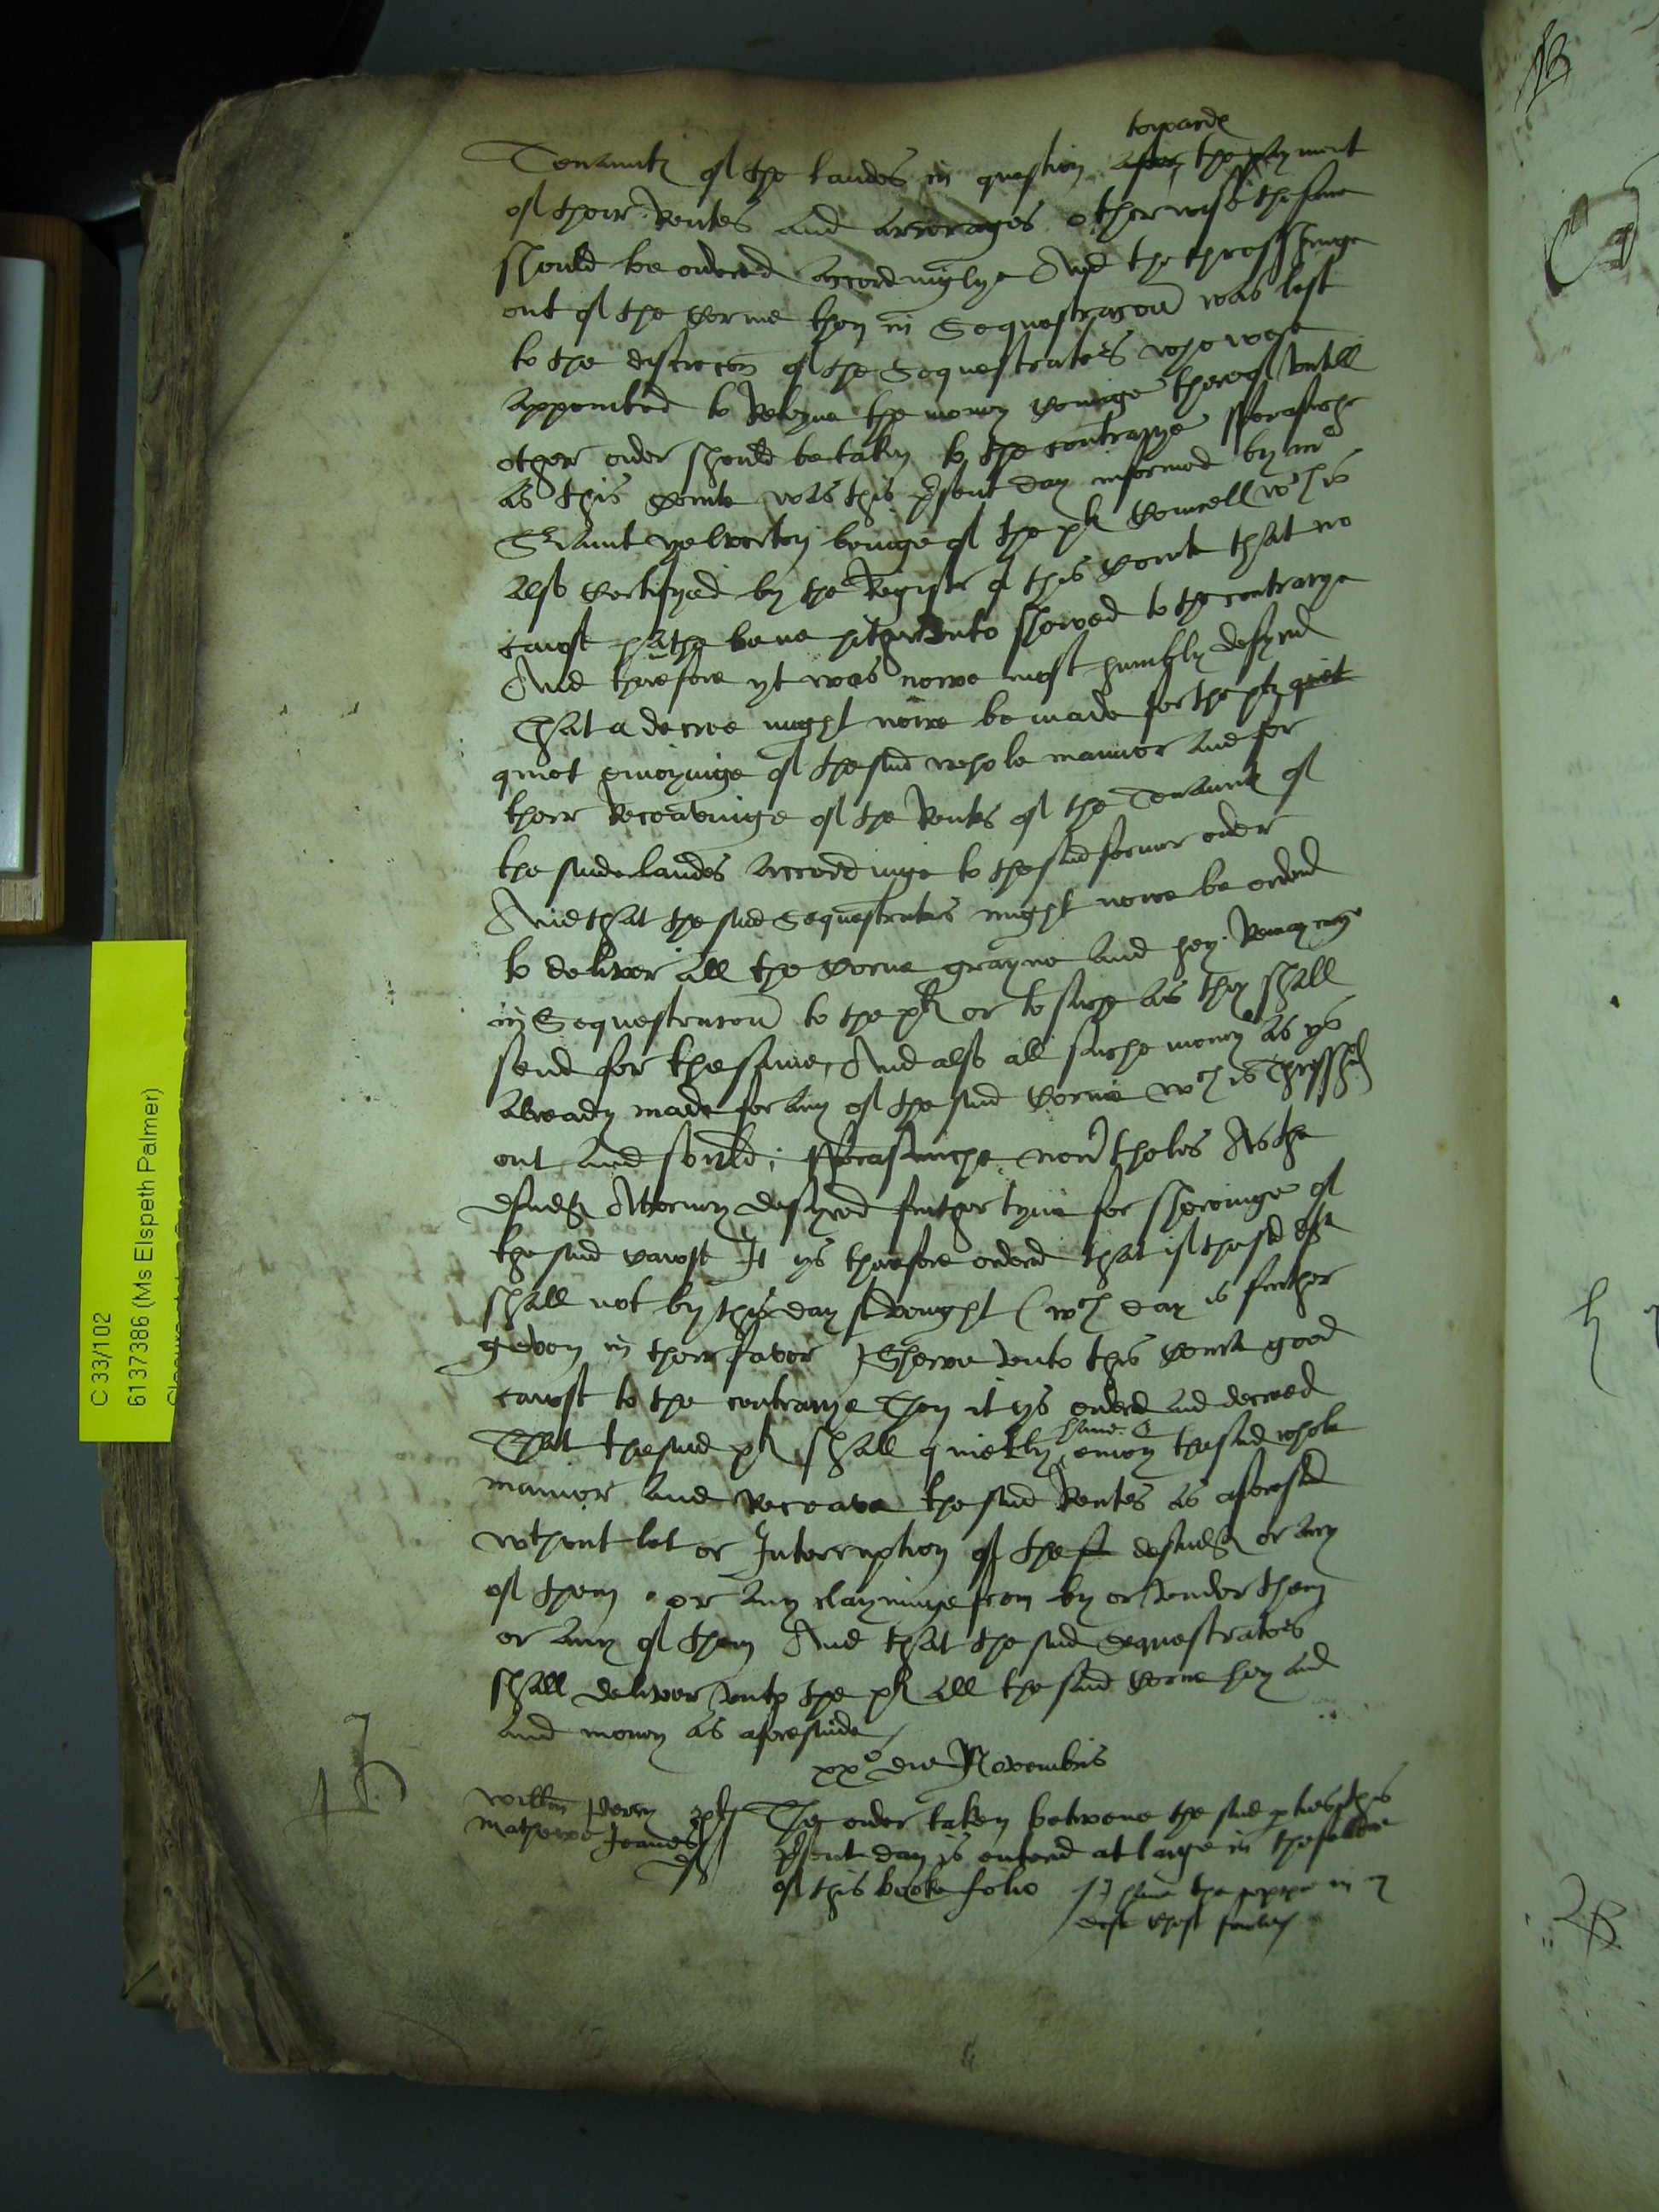 towards
Tenaunts of the landes in question after the payment
of their Rentes and arrerages otherwise the same
should be ordered accordinglye And the thresshinge
out of the Corne then in Sequestracon was left
to the discrecon of the Sequestrators who were
appointed to Reteyne the money cominge thereof untill
other order should be taken to the contrarye Forasmuche
as this Courte was this psent day informed by mr
Sriaunt yelverton beinge of the pls Councell wch is
also Certifyed by the Register of this Courte that no
cawse hathe bene hitherunto shewed to the contrarye
And therefore yt was nowe most humbly desyred
That a decree might nowe be made for the pls quiet
quiet enioyinge of the said whole mannor and for
their Receavinge of the Rentes of the Tenaunts of
the saide landes accordinge to the said former order
And that the said Sequestrators might nowe be ordered
to deliver all the Corne grayne and hey Remayninge
in Sequestracon to the pls or to suche as they shall
send for the same, And also all suche money as ys
already made for any of the said Corne wch is Thresshed
out and sould; Forasmuche nevertheles As the
defendts Attorney desyred further tyme for shewinge of
the said Cawse It ys therefore ordered that if the sd deft
shall not by this day sevenight (wch day is further
geven in their favor) Shewe unto this Courte good
cawse to the contrarye Then it ys ordered and decreed
That the said pls shall quietly have & enioy the said whole
mannor and Receave the said Rentes as aforesaid
wthout let or Interruption of the defendts or any
of them or any clayminge from by or under them
or any of them And that the said Sequestrators
shall deliver unto the pls all the said Corne hey and
and money as aforesaide
xxo die Novembris
Willm Perry pls
Mathewe Jeanes
dfs
The order taken betwene the said pties this
psent day is entered at large in the
of this booke folio
C 33/102
61 37386 (Ms Elspeth Palmer)